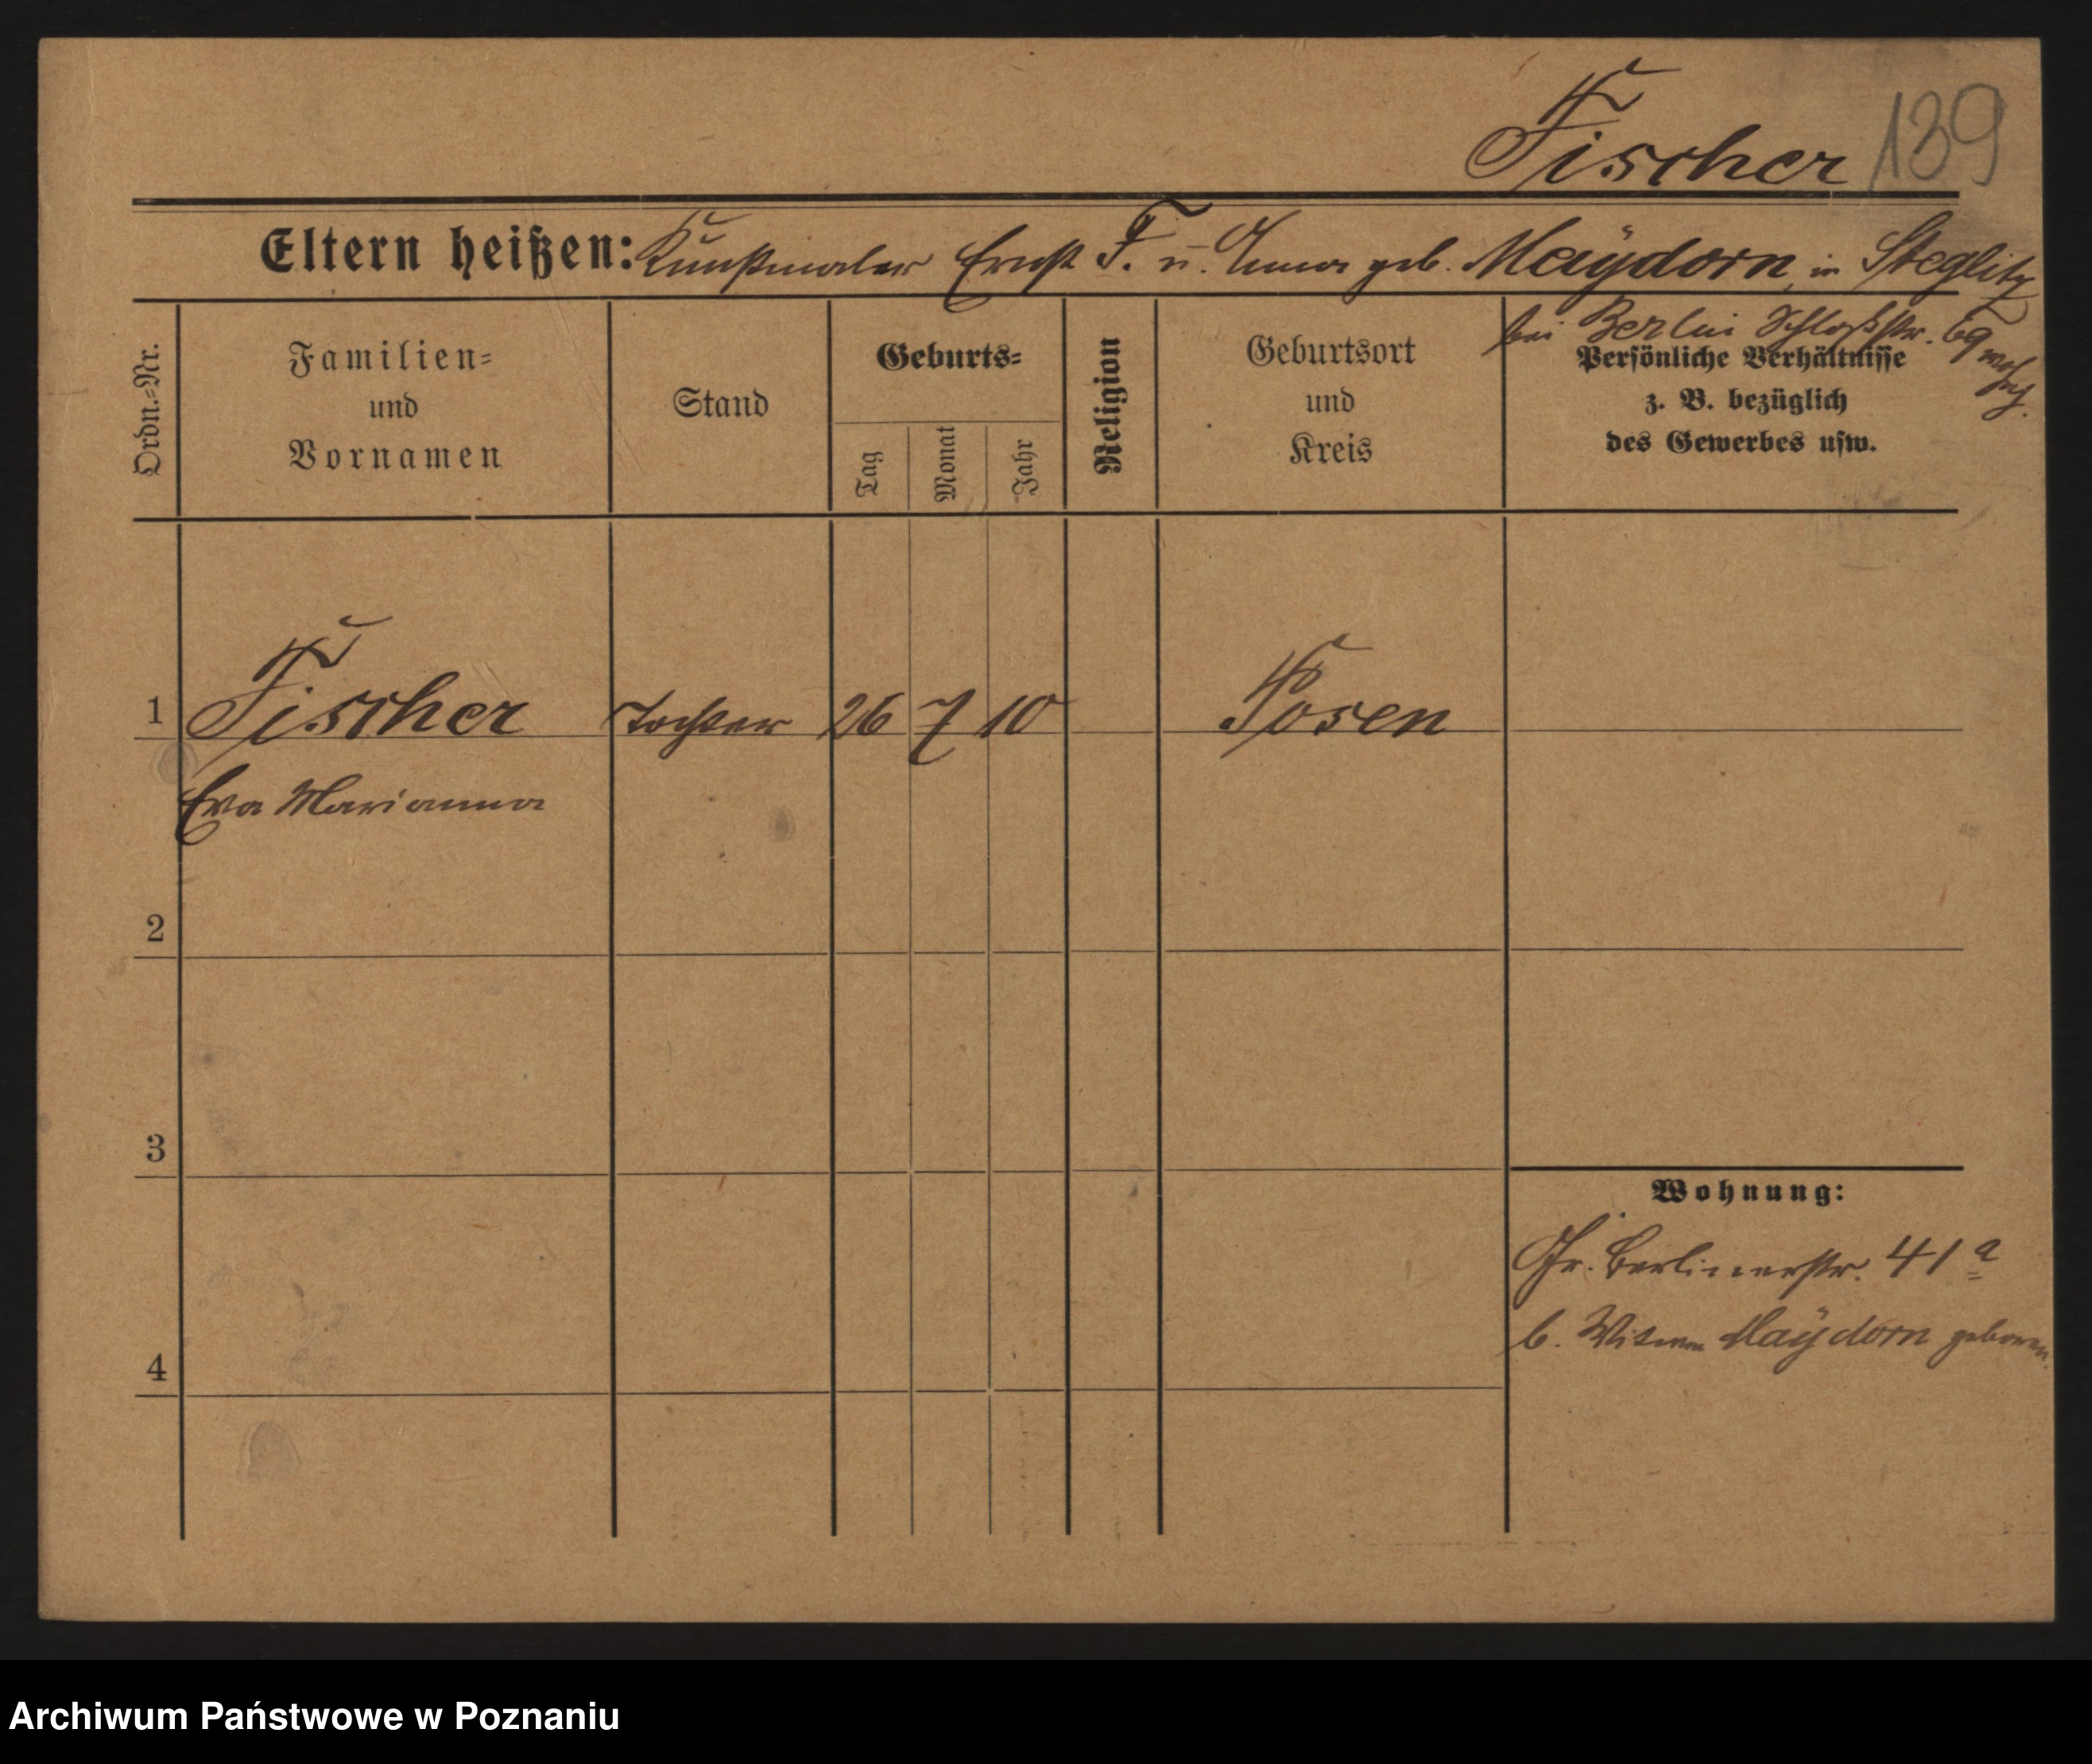 Fischer 139
Eltern heißen: Kunstmaler Ernst F. u. Anna geb. Maÿdorn, in Steglitz
bei Berlin Schloßstr. 69 wohnh.
Ordn.-Nr.
Familien-
und
Vornamen
Stand
Geburts-
Tag
Monat
Jahr
Religion
Geburtsort
und
Kreis
Persönliche Verhältnisse
z. B. bezüglich
des Gewerbes usw.
1 Fischer Tochter 26 7 10 Posen
Eva Marianna
2
3
Wohnung:
Gr. Berlinerstr. 41 a
b. Witwe Maÿdorn geboren.
4
Archiwum Państwowe w Poznaniu